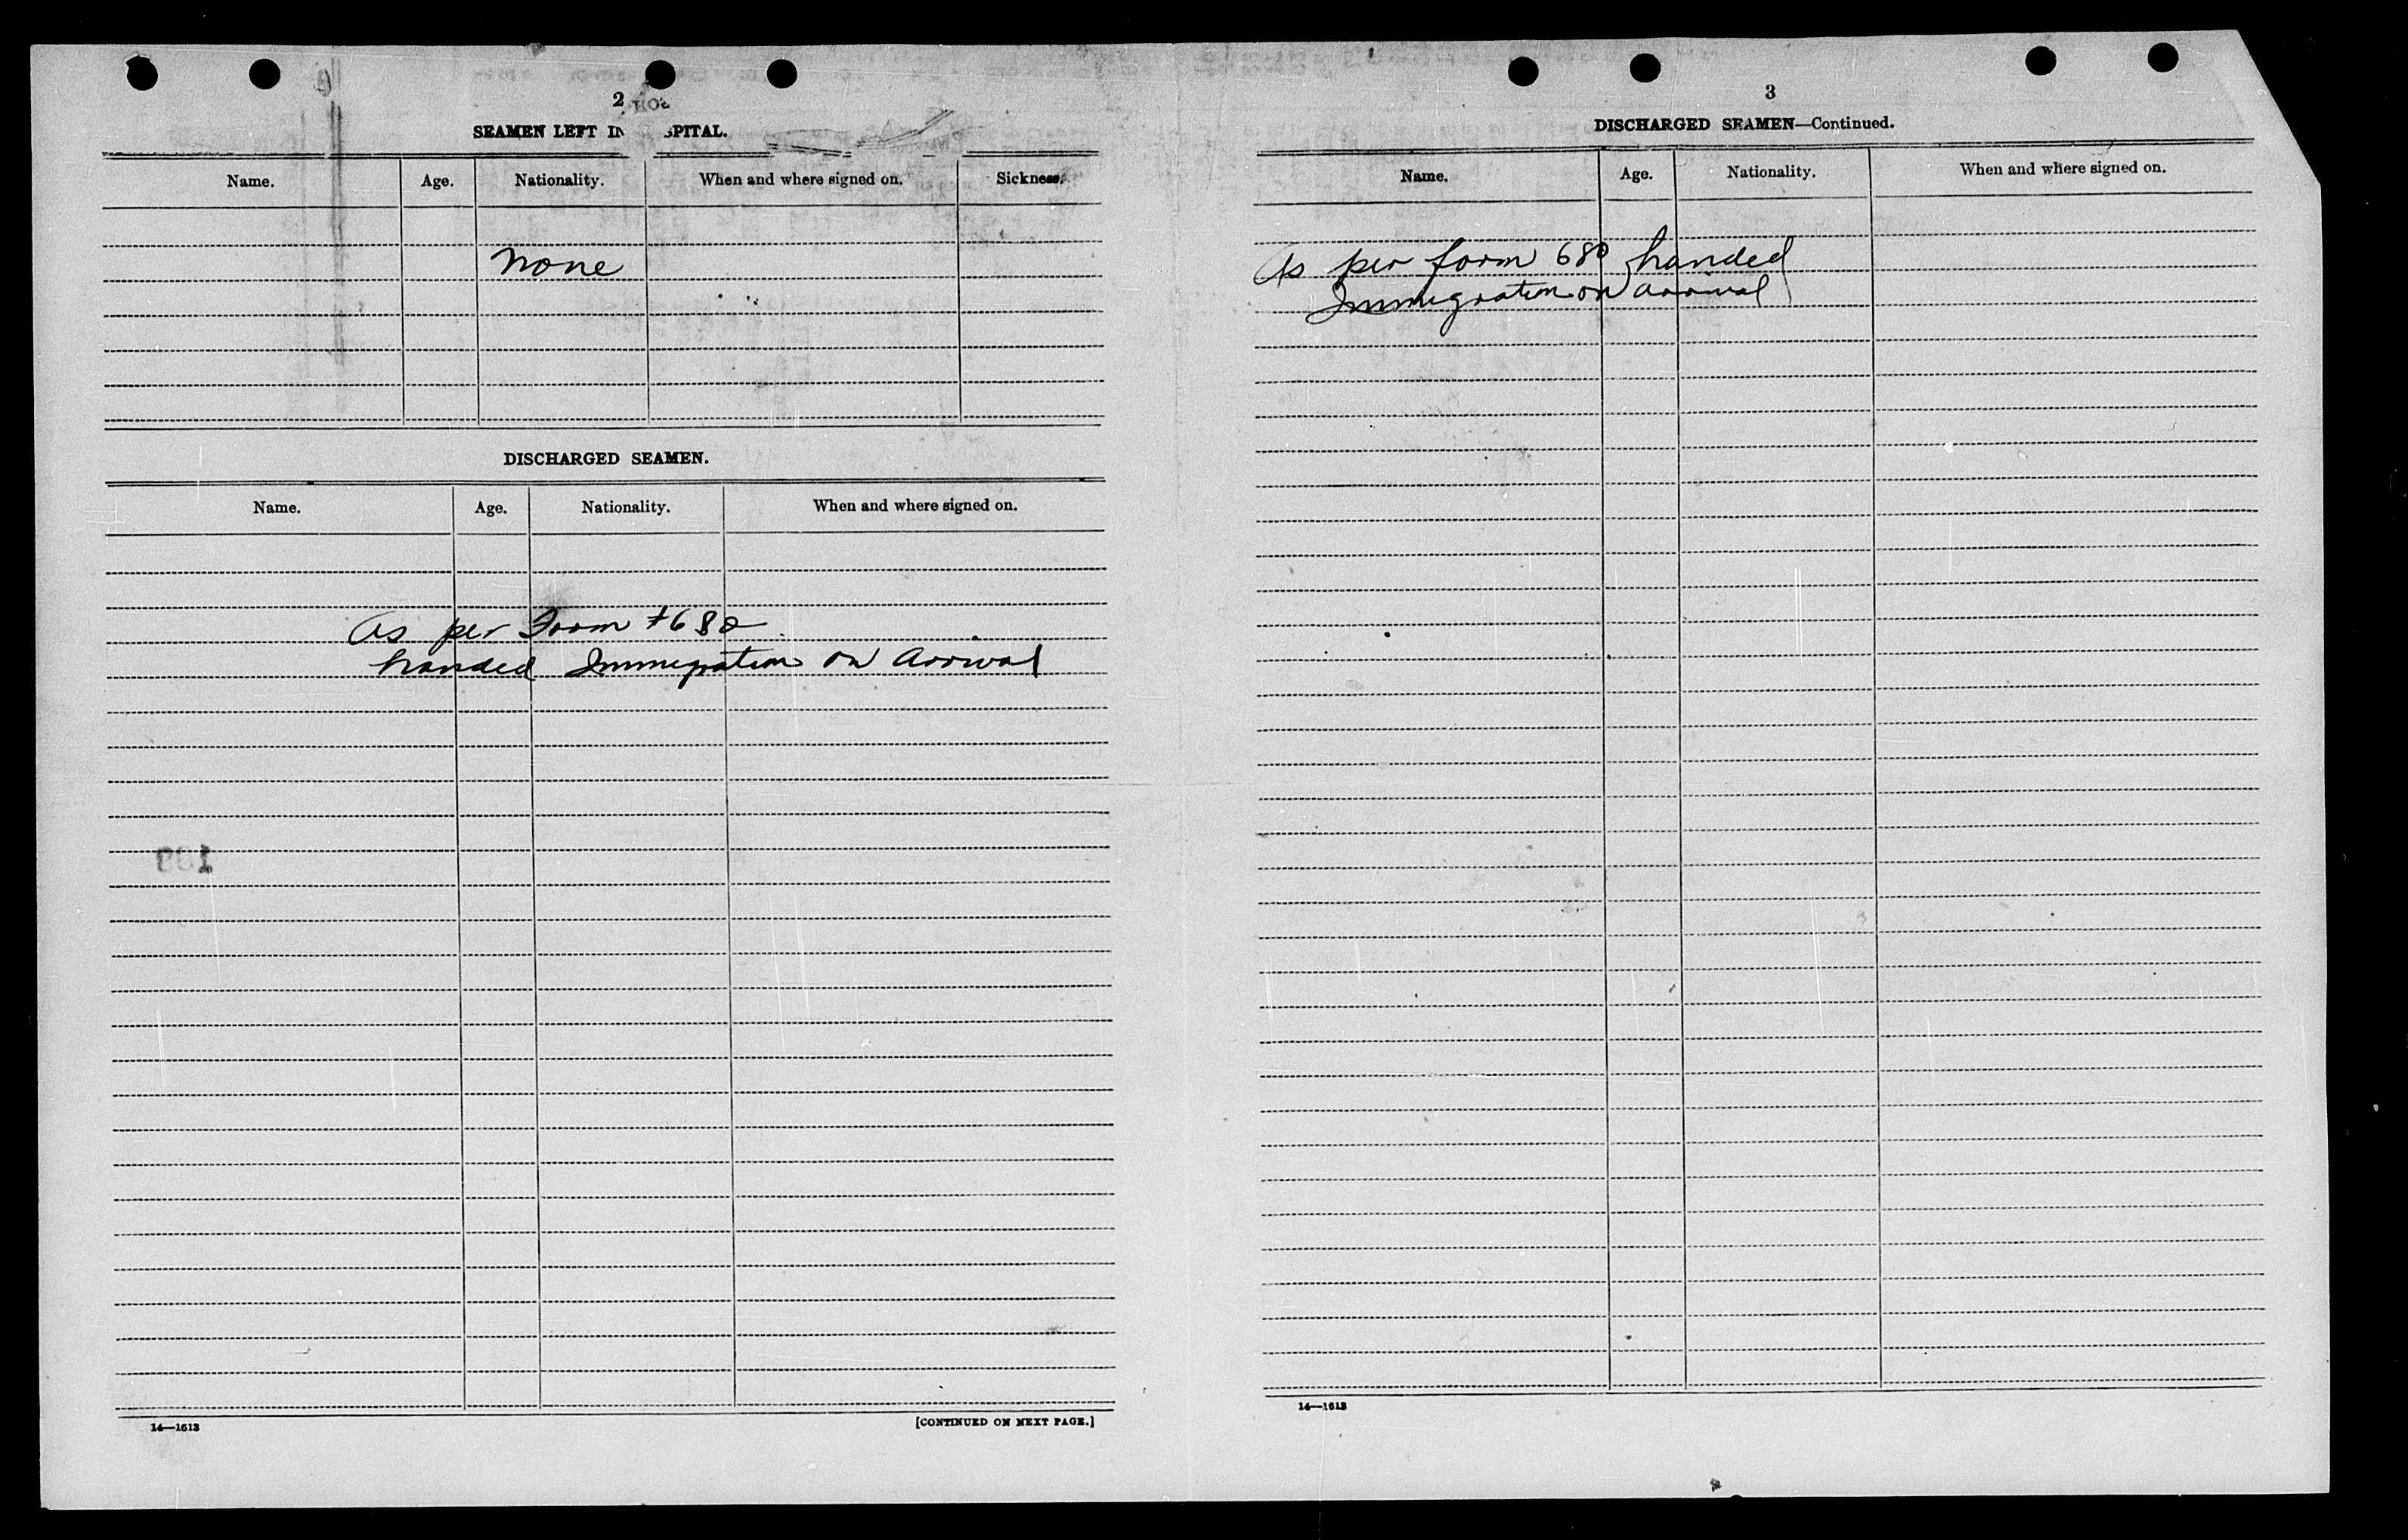 2
SEAMEN LEFT IN HOSPITAL.
Name. Age. Nationality. When and where signed on. Sickness.
None
DISCHARGED SEAMEN.
Name. Age. Nationality. When and where signed on.
As per Form #680
handed Immigration on Arrival
14—1613 [CONTINUED ON NEXT PAGE.]
3
DISCHARGED SEAMEN—Continued.
Name. Age. Nationality. When and where signed on.
As per form 680 handed
Immigration on arrival
14—1613